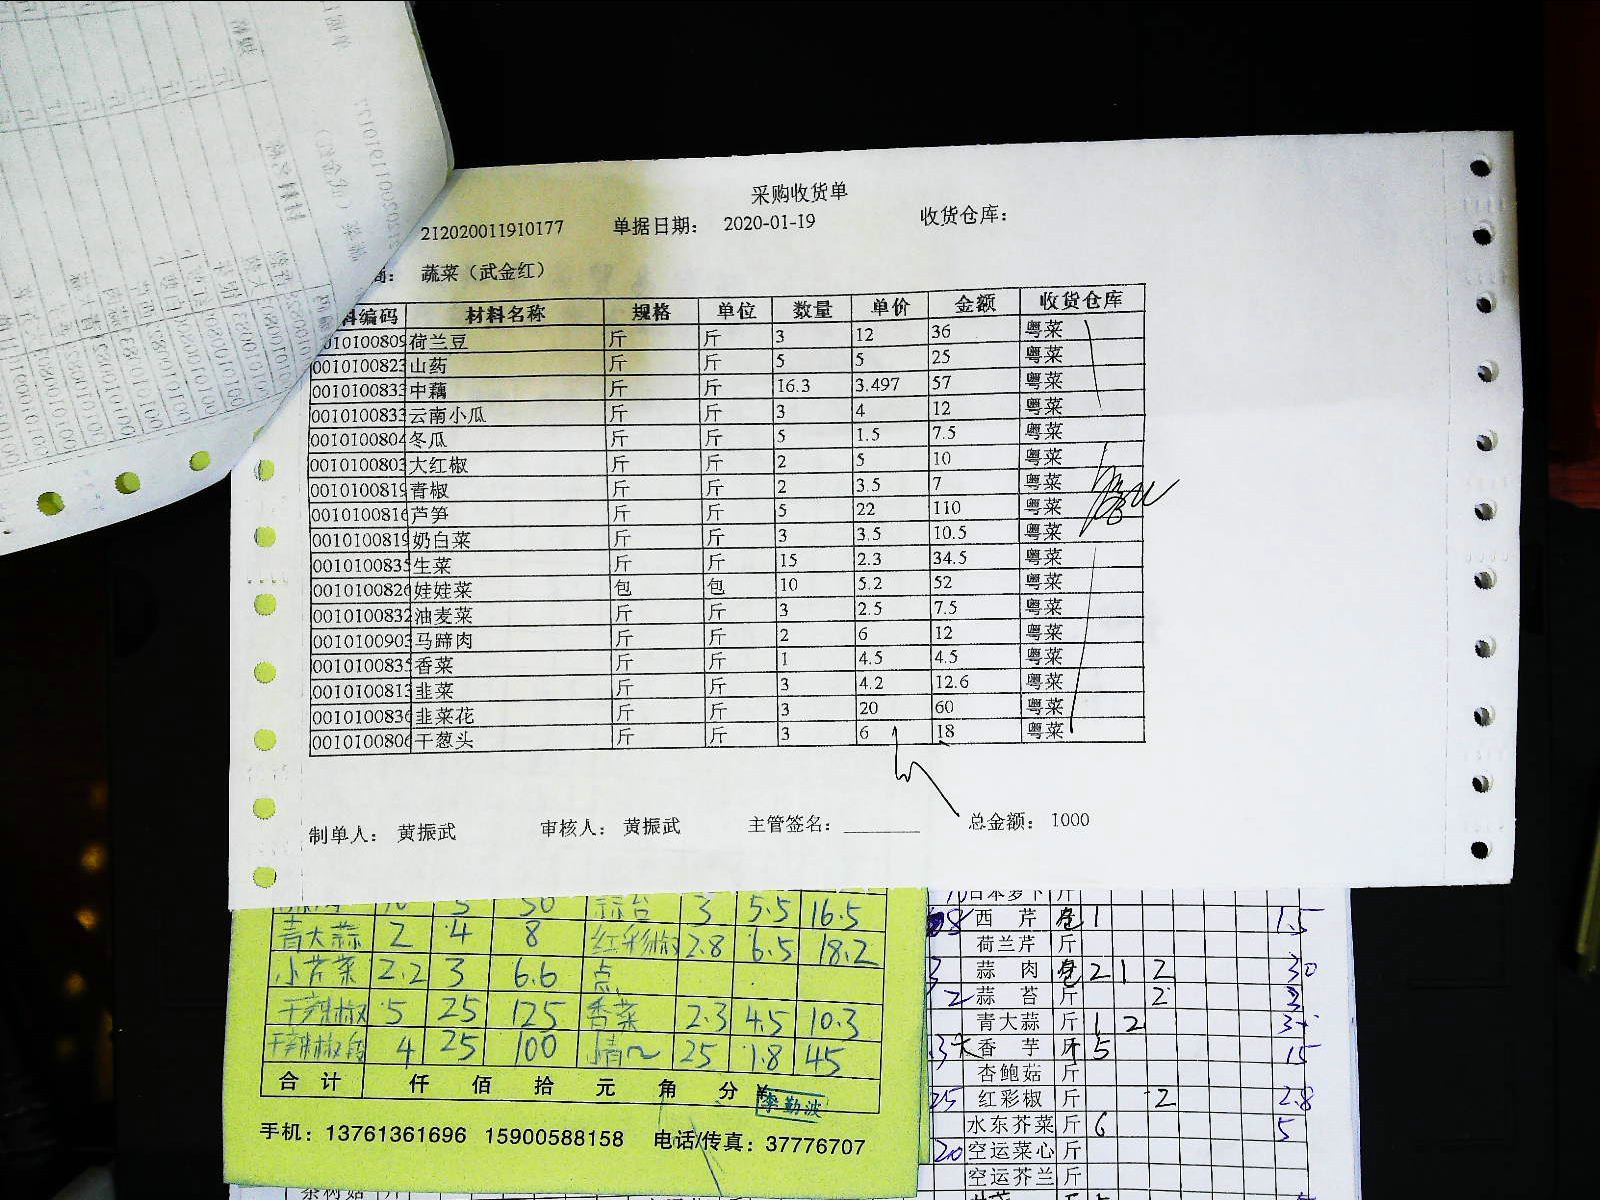 采购收货单
212020011910177 单据日期: 2020-01-19 收货仓库:
商: 蔬菜（武金红）
料编码 材料名称 规格 单位 数量 单价 金额 收货仓库
0010100809 荷兰豆 斤 斤 3 12 36 粤菜
0010100823 山药 斤 斤 5 5 25 粤菜
0010100833 中藕 斤 斤 16.3 3.497 57 粤菜
0010100833 云南小瓜 斤 斤 3 4 12 粤菜
0010100804 冬瓜 斤 斤 5 1.5 7.5 粤菜
0010100803 大红椒 斤 斤 2 5 10 粤菜
0010100819 青椒 斤 斤 2 3.5 7 粤菜
0010100816 芦笋 斤 斤 5 22 110 粤菜
0010100819 奶白菜 斤 斤 3 3.5 10.5 粤菜
0010100835 生菜 斤 斤 15 2.3 34.5 粤菜
0010100826 娃娃菜 包 包 10 5.2 52 粤菜
0010100832 油麦菜 斤 斤 3 2.5 7.5 粤菜
0010100903 马蹄肉 斤 斤 2 6 12 粤菜
0010100835 香菜 斤 斤 1 4.5 4.5 粤菜
0010100813 韭菜 斤 斤 3 4.2 12.6 粤菜
0010100836 韭菜花 斤 斤 3 20 60 粤菜
0010100806 干葱头 斤 斤 3 6 18 粤菜
制单人: 黄振武 审核人: 黄振武 主管签名: 总金额: 1000
10 5 50 蒜台 3 5.5 16.5
青大蒜 2 4 8 红彩椒 2.8 6.5 18.2
小芹菜 2.2 3 6.6 点
干辣椒 5 25 125 香菜 2.3 4.5 10.3
干辣椒段 4 25 100 25 1.8 45
合 计 仟 佰 拾 元 角 分 ¥
李勤波
手机: 13761361696 15900588158 电话/传真: 37776707
日本萝卜 斤
西 芹 1 1.5
荷兰芹 斤
3 蒜 肉 2 1 2 30
2 蒜 苔 斤 2 3
青大蒜 斤 1 2
香 芋 斤 5 15
杏鲍菇 斤
25 红彩椒 斤 2 2.8
水东芥菜 斤 6 5
20 空运菜心 斤
空运芥兰 斤
茶树菇 斤